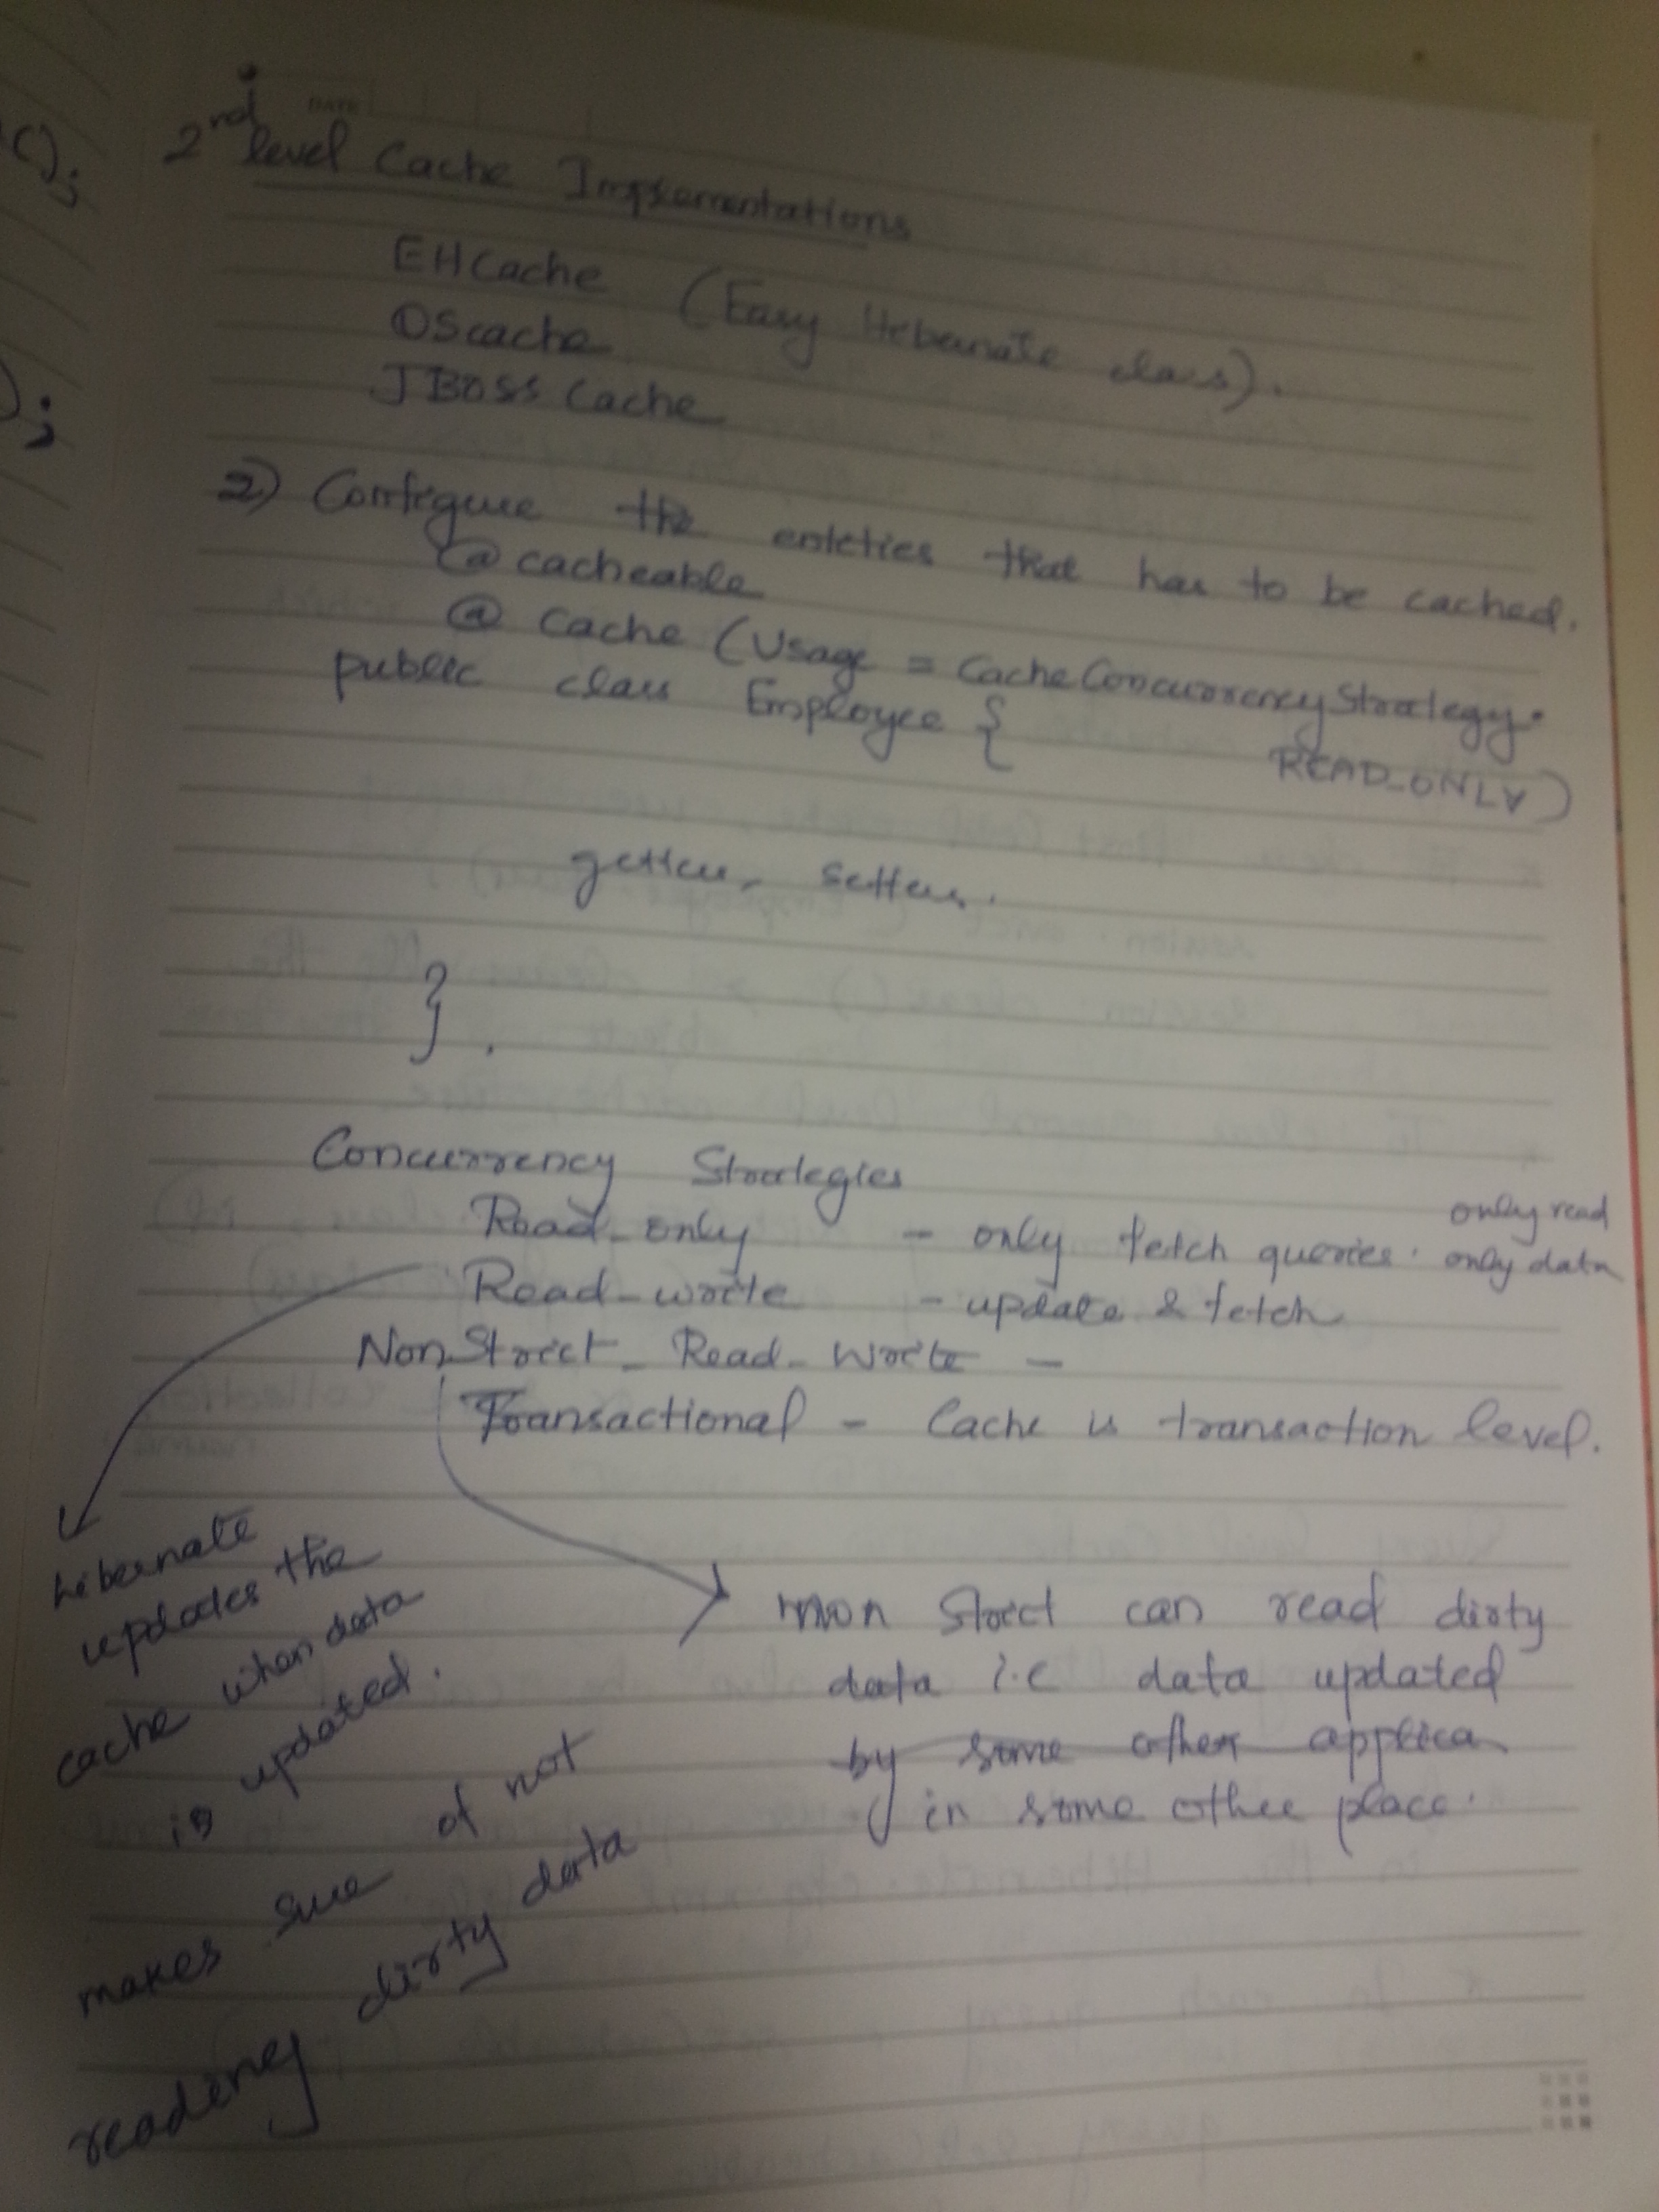 DATE
2nd level Cache Implementations
EHCache (Easy Hebernate class).
OScache
JBOSS Cache
2) Configure the enteties that has to be cached.
@ cacheable
@ Cache (Usage = CacheConcurrencyStrategy.
READ_ONLY)
public class Employee {
getters, setters.
}
Concurrency Strategies
Read_only - only fetch queries. only read
only data
Read_write - update & fetch
NonStrict_Read_Write -
Transactional - Cache is transaction level.
hibernate
updates the
cache when data
is updated.
makes sure of not
reading dirty data
non Strict can read dirty
data i.e data updated
by some other applica
in some other place.